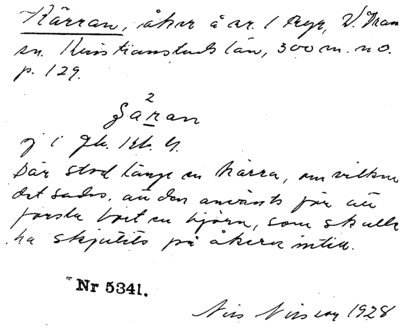 Kärran, åker å ar. 1 Ryr, V. Ram
sn. Kristianstads län, 300 m. n.o.
p. 129.
2
ej i jb.
Där stod länge en kärra, om vilken
det sades, att den använts för att
forsla bort en björn, som skulle
ha skjutits på åkern intill.
Nr 5341.
Nils Nilsson 1928